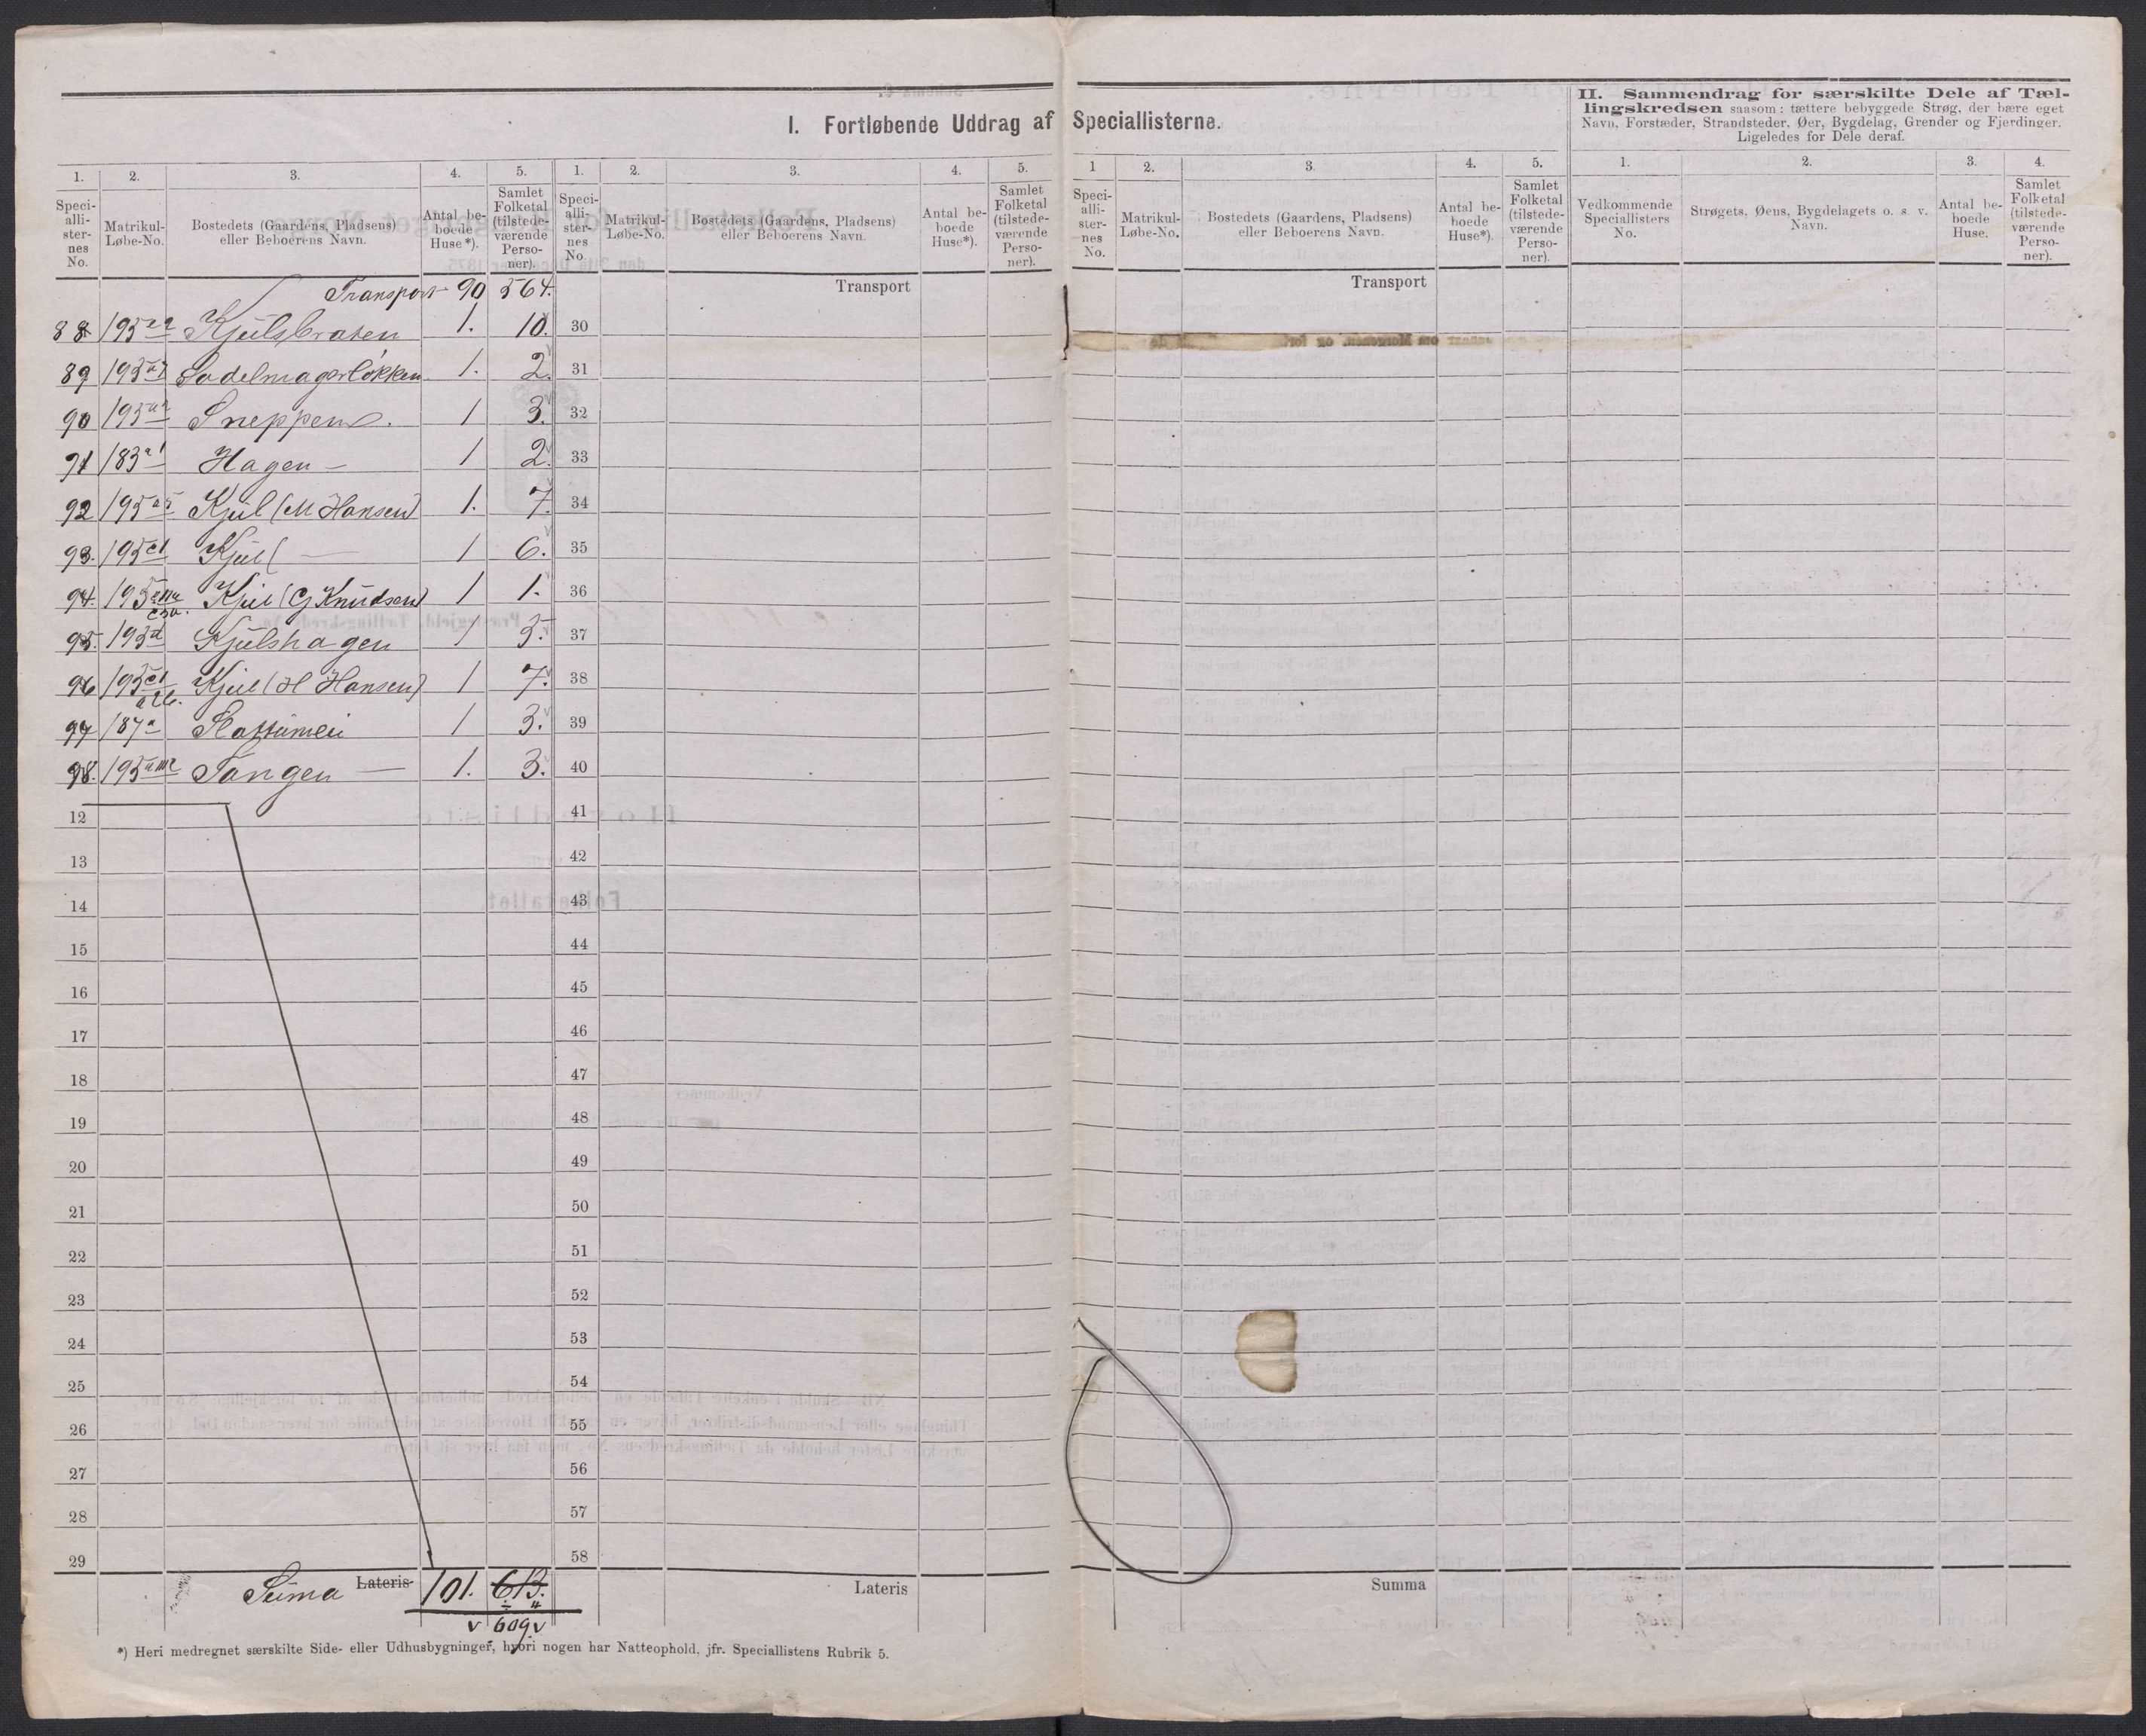 I. Fortløbende Uddrag af Speciallisterne.
II. Sammendrag for særskilte Dele af Tæl-
lingskredsen saasom: tættere bebyggede Strøg, der bære eget
Navn, Forstæder, Strandsteder, Øer, Bygdelag, Grender og Fjerdinger.
Ligeledes for Dele deraf.
1. 2. 3. 4. 5. 1. 2. 3. 4. 5. 1 2. 3. 4. 5. 1. 2. 3. 4.
Speci-alli-ster-nes No. Matrikul-Løbe-No. Bostedets (Gaardens, Pladsens) eller Beboerens Navn. Antal be-boede Huse*). Samlet Folketal (tilstede-værende Perso-ner).
Speci-alli-ster-nes No. Matrikul-Løbe-No. Bostedets (Gaardens, Pladsens) eller Beboerens Navn. Antal be-boede Huse*). Samlet Folketal (tilstede-værende Perso-ner).
Speci-alli-ster-nes No. Matrikul-Løbe-No. Bostedets (Gaardens, Pladsens) eller Beboerens Navn. Antal be-boede Huse*). Samlet Folketal (tilstede-værende Perso-ner).
Vedkommende Speciallisters No. Strøgets, Øens, Bygdelagets o. s. v. Navn. Antal be-boede Huse. Samlet Folketal (tilstede-værende Perso-ner).
Transport 90 564. Transport Transport
88 195 Kjulsbraten 1. 10. 30
89 195 Sadelmagerløkken 1. 2. 31
90 195 Sneppen. 1 3. 32
91 183 a1 Hagen — 1 2. 33
92 195 a5 Kjul (M Hansen) 1. 7. 34
93. 195 c1 Kjul ( — 1 6. 35
94. 195 Kjul (G Knudsen) 1 1. 36
95. 195 d Kjulshagen 1 5. 37
96 195 c1 Kjul (H Hansen) 1 7. 38
97 187 a Slattumeie 1 3. 39
98. 195 Tangen — 1. 3. 40
12 41
13 42
14 43
15 44
16 45
17 46
18 47
19 48
20 49
21 50
22 51
23 52
24 53
25 54
26 55
27 56
28 57
29 58
Suma Lateris 101. 613. Lateris Summa
v 609 v
*) Heri medregnet særskilte Side- eller Udhusbygninger, hvori nogen har Natteophold, jfr. Speciallistens Rubrik 5.